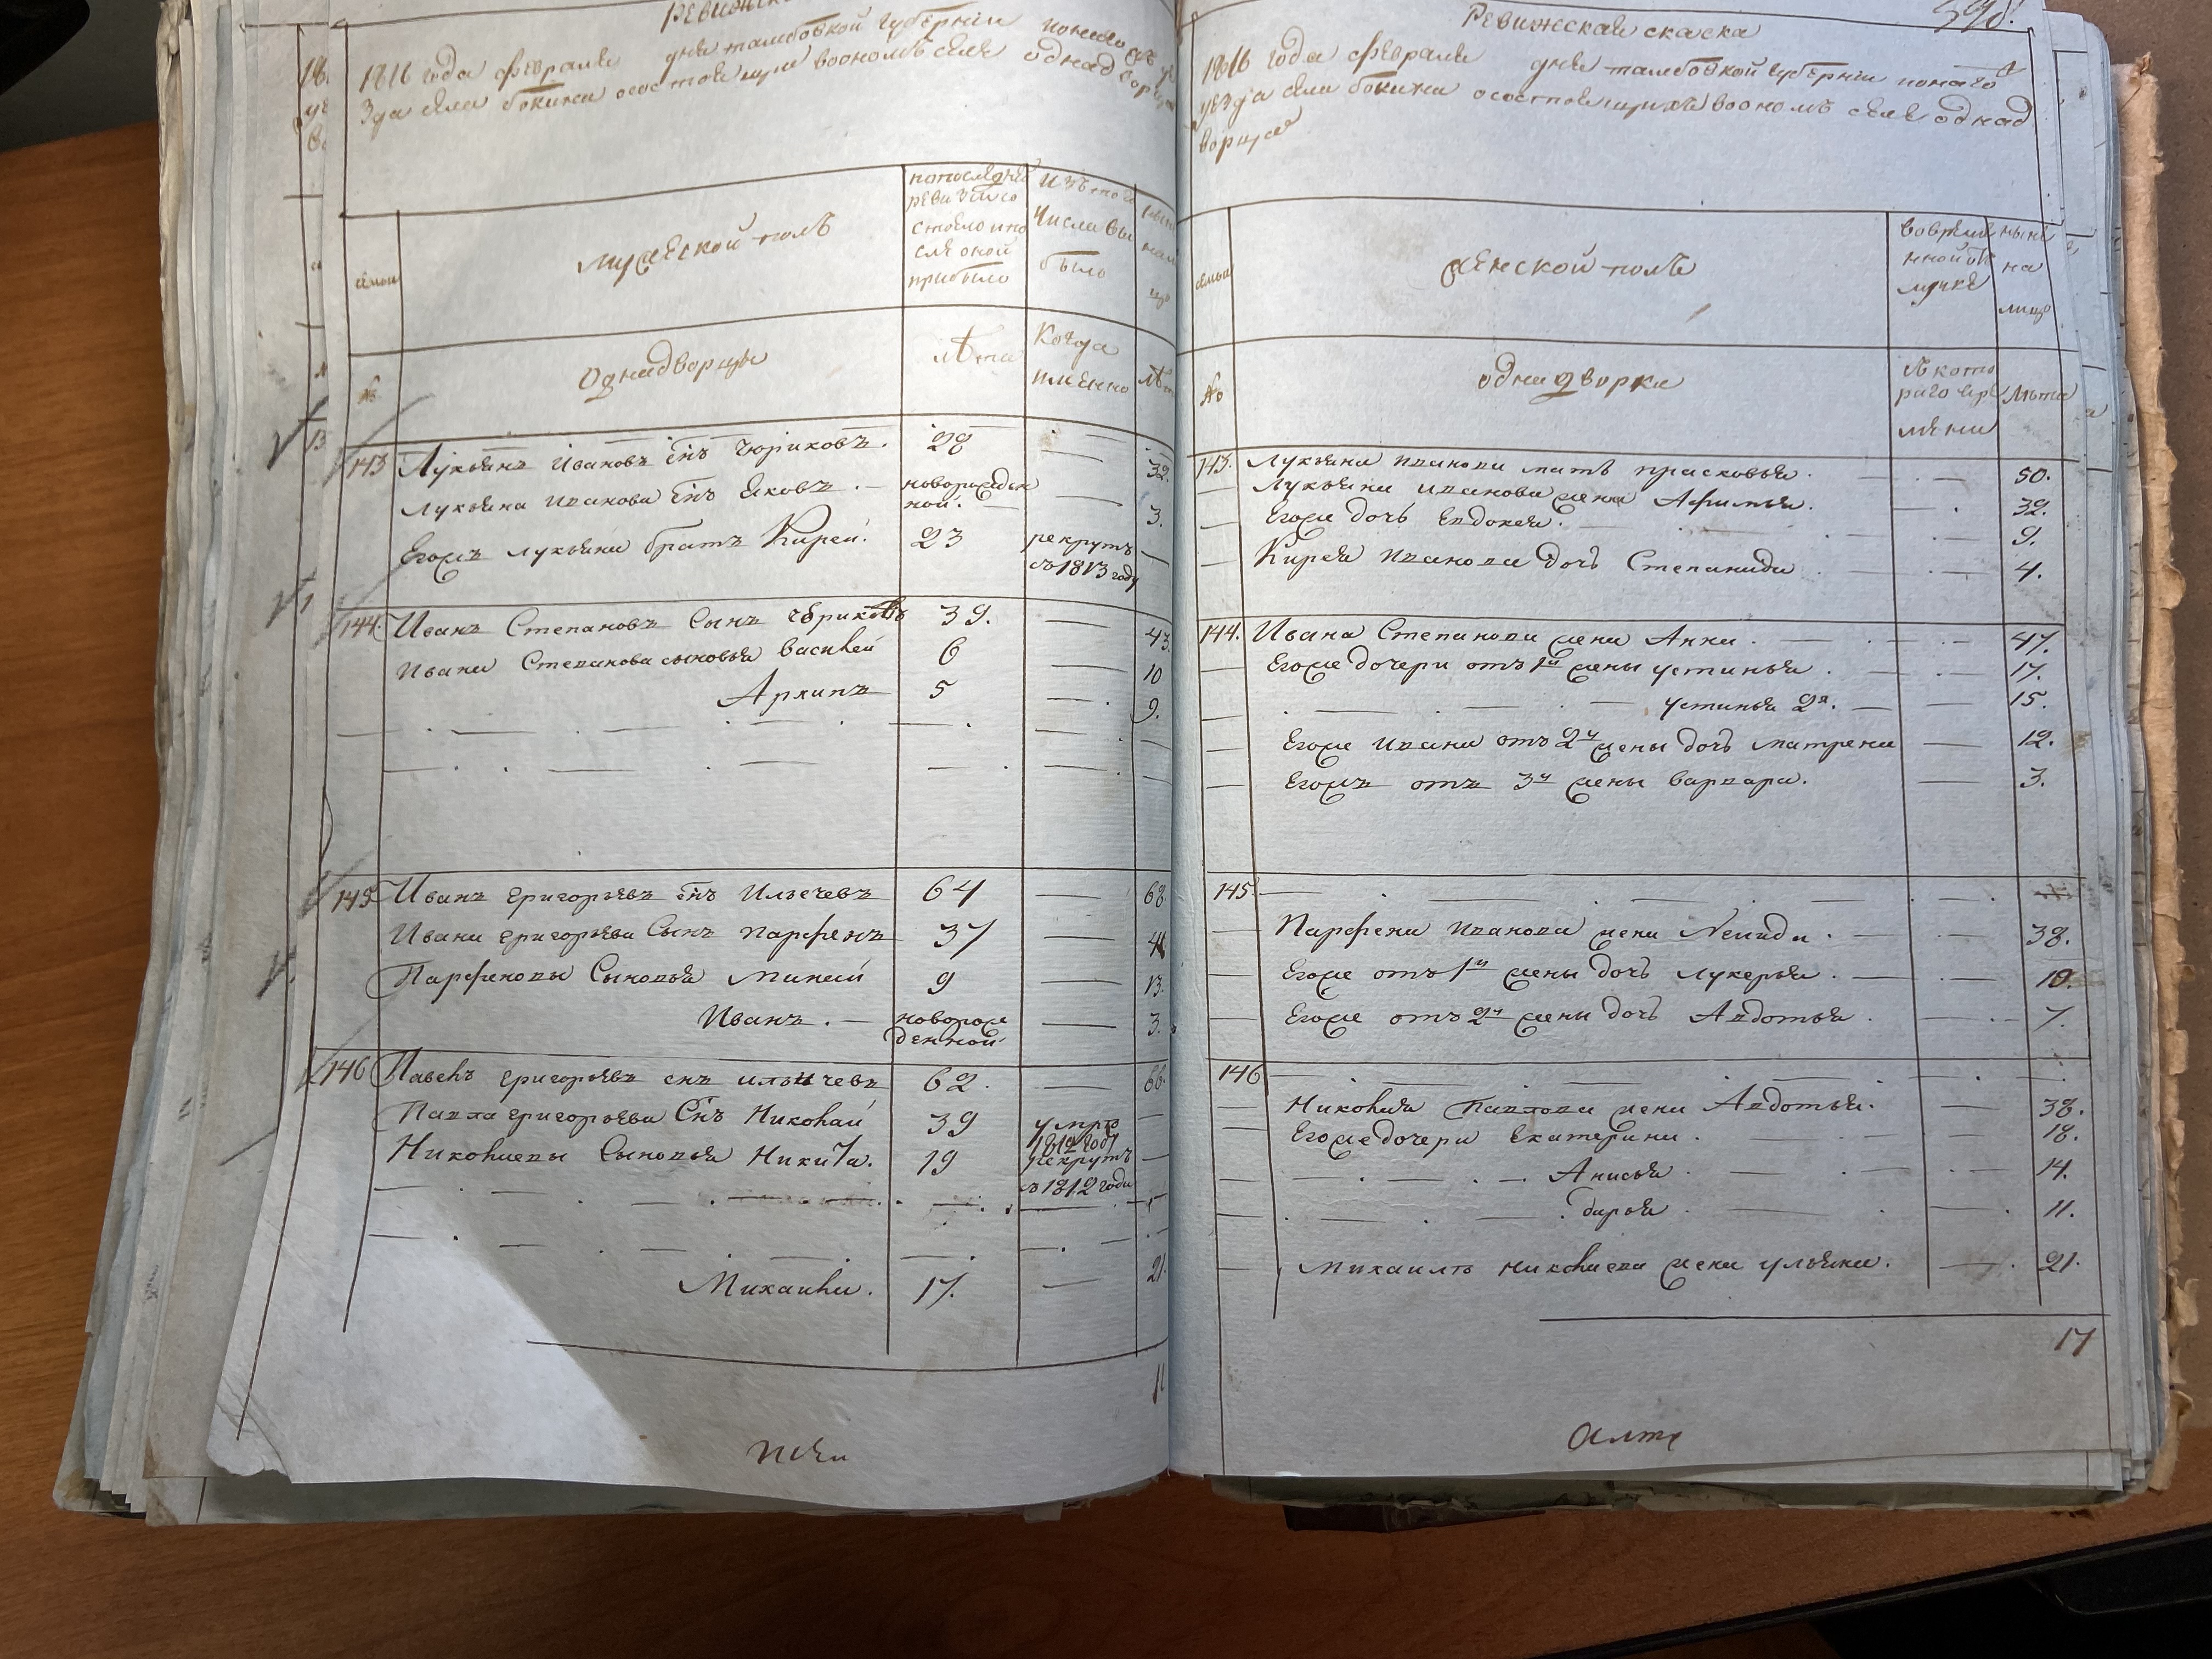 1816 года февраля дня тамбовской губернии
зда села бокина осостоящихъ воономъ селе однад
мужеской полъ
попоследней
ревизии
состояло ипо
сле оной
прибыло
Изъ того
Числа вы
было
семьи
№
Однадворцы
лѣта
Когда
имянно
143 Лукьянъ Ивановъ снъ Чюриковъ. 28 — 32.
Лукьяна иванова снъ Яковъ. — новорожден
ной. — 3.
Егожъ лукьяна братъ Кирей. 23 рекрутъ —
въ 1813 году
144. Иванъ Степановъ Сынъ чюриковъ 39. — 43.
Ивана Степанова сыновья василей 6 — 10
Архипъ 5 — 9.
145 Иванъ григорьевъ снъ Ильечевъ 64 — 68.
Ивана григорьева Сынъ парфенъ 37 — 41
Парфеновы Сыновья Миней 9 — 13.
Иванъ. — новорож — 3.
денной
146 Павелъ григорьевъ снъ ильичевъ 62. — 66.
Павла григорьева Снъ Николай 39 умре —
1812 году
Николаевы Сыновья Никита. 19 рекрутъ —
въ 1812 годе
Михаила. 17. — 21.
11
Ревижская скаска
1816 года февраля дня тамбовской губернии
уезда села бокина осостоящихъ воономъ селе однад
ворцахъ
семьи
женской полъ
вовремен
нной от
лучке
ныне
на
лицо
№
однадворки
съ кото
раго вре
мени
лѣта
143. Лукьяна иванова мать прасковья. — 50.
— Лукьяна иванова жена Афимья. — 32.
— Егоже дочь Евдокея. — 9.
— Кирея иванова дочь Степанида — 4.
144. Ивана Степанова жена Анна. — 47.
— Егоже дочери отъ 1й жены устинья. — 17.
— устинья 2я. — 15.
— Егоже ивана отъ 2й жены дочь матрена — 12.
— Егожъ отъ 3й жены варвара. — 3.
145.
— Парфена иванова жена — 38.
— Егоже отъ 1й жены дочь лукерья. — 10.
— Егоже отъ 2й жены дочь Авдотья. — 7.
146
— Николая Павлова жена Авдотья. — 38.
— Егоже дочери Екатерина. 18.
— Анисья — 14.
— дарья — 11.
Михаилъ николаева жена ульяна. — 21.
17